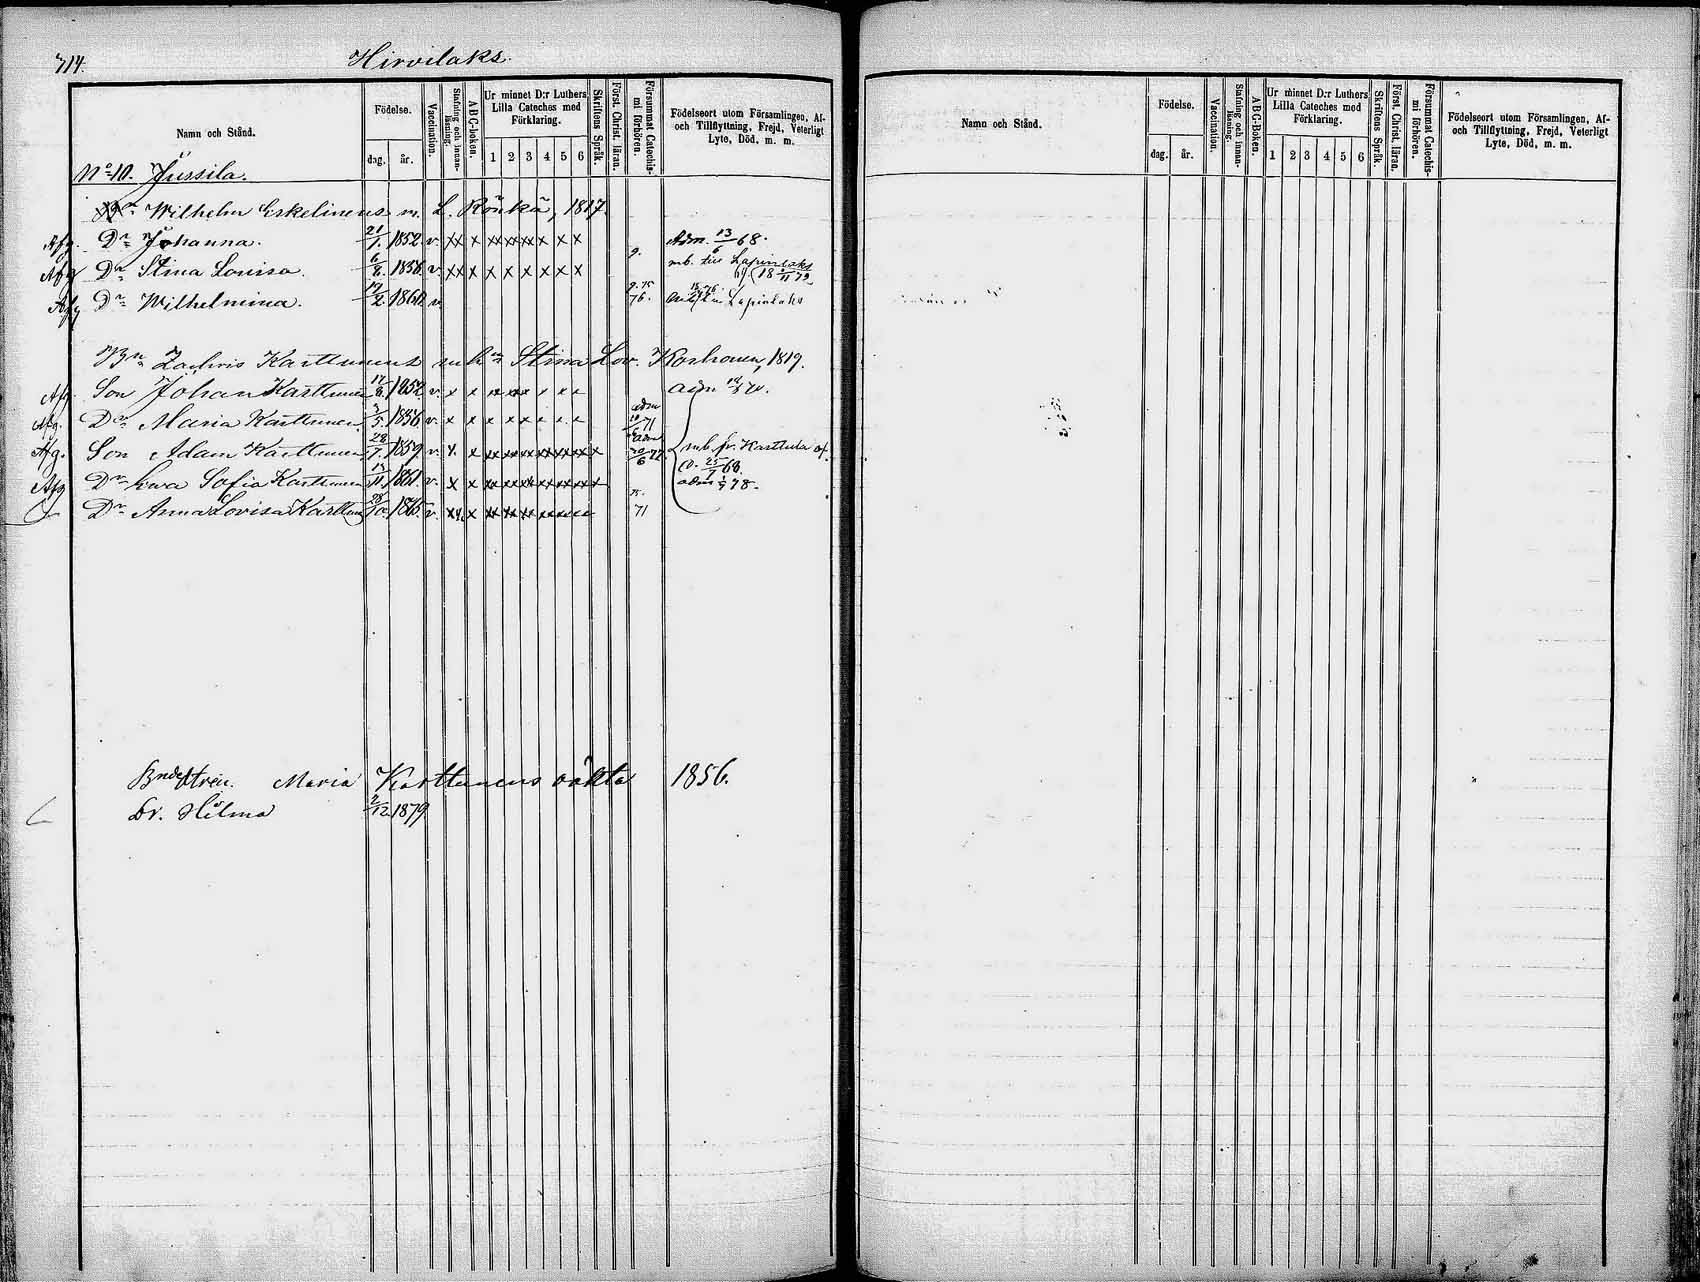 714.
Hirvilaks.
Namn och Stånd.
Födelse.
dag.
år.
Vaccination.
Stafning och innan-läsning.
A B C-boken.
Ur minnet D:r Luthers Lilla Cateches med Förklaring.
1 2 3 4 5 6
Skriftens Språk.
Först. Christ. läran.
Försummat Catechis-mi förhören.
Födelseort utom Församlingen, Af- och Tillflyttning, Frejd, Veterligt Lyte, Död, m. m.
No 10. Jussila.
Wilhelm Eskelinens m. L. Rönkä, 1817.
Afg. Dr Johanna. 21/1. 1852. v. xx x x xx xx x x x Adm. 13/6 68.
Afg Dr Stina Lovisa. 6/8. 1856. v. xx x x x x x x x 9. mb. till Lapinlaks
Afg Dr Wilhelmina. 17/2 1860. v. 9. 75 76. Lapinlaks
Zachris Karttunens enka Stina Lov. Korhonen, 1819.
Afg. Son Johan Karttunen 17/8. 1852. v. x x xx xx x x x adm 70.
Afg. Dr Maria Karttunen. 3/5. 1856. v. x x x x x x x x adm 71
Afg. Son Adam Karttunen 28/7. 1859. v. x. x mb. fr. Karttula af
Afg Dr Ewa Sofia Karttunen 13/11. 1861. v. x x 25/7 68. adm 78.
Dr Anna Lovisa Karttunen 28/10. 1865. v. x 75. 71
Maria Karttunens oäkta 1856.
Dr. Hilma 2/12. 1879.
Namn och Stånd.
Födelse.
dag.
år.
Vaccination.
Stafning och innan-läsning.
A B C-Boken.
Ur minnet D:r Luthers Lilla Cateches med Förklaring.
1 2 3 4 5 6
Skriftens Språk.
Först. Christ. läran.
Försummat Catechis-mi förhören.
Födelseort utom Församlingen, Af- och Tillflyttning, Frejd, Veterligt Lyte, Död, m. m.